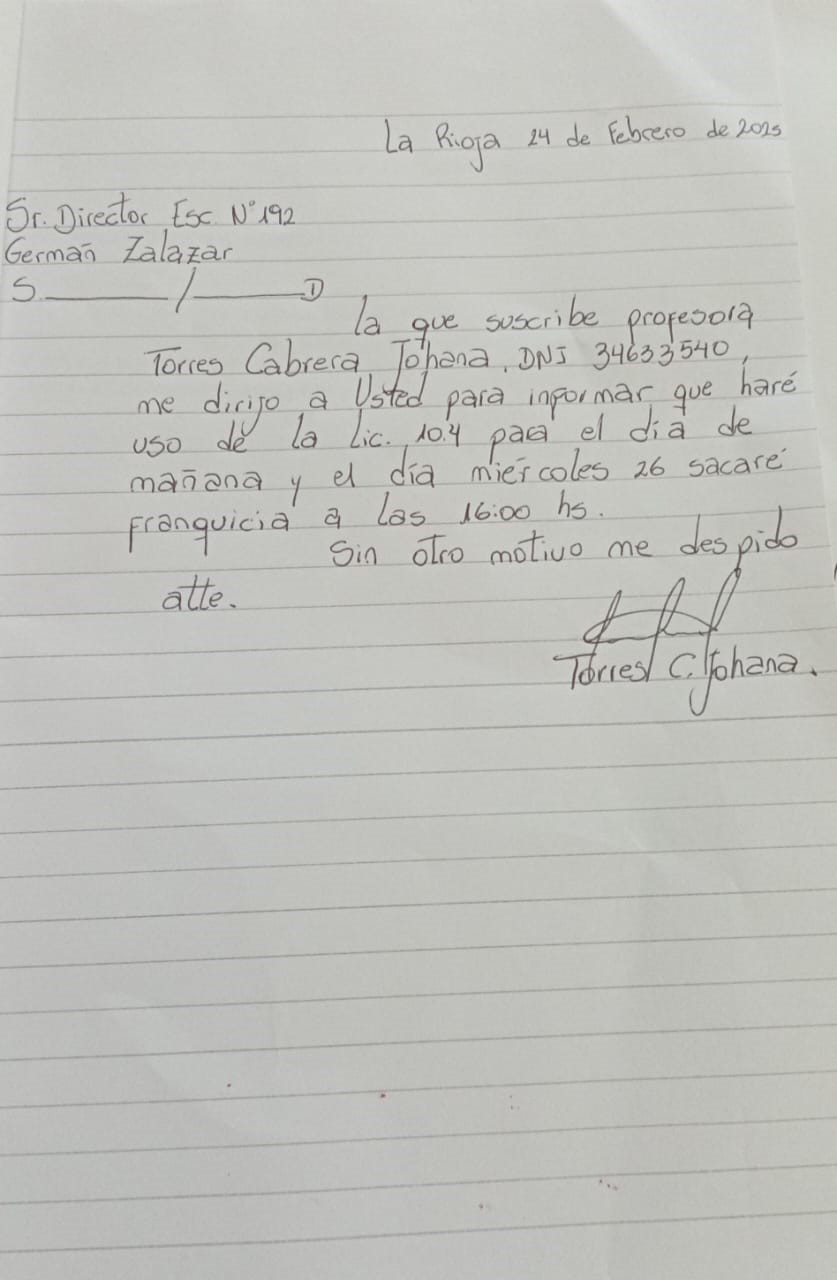 La Rioja 24 de Febrero de 2025
Sr. Director Esc N° 192
Germań Zalazar
S________/________D
la que suscribe profesora
Torres Cabrera Johana, DNI 34633540,
me dirijo a Usted para informar que haré
uso de la Lic. 10.4 para el día de
mañana y el día miércoles 26 sacaré
Franquicia a las 16:00 hs.
Sin otro motivo me despido
atte.
Torres C. Johana.